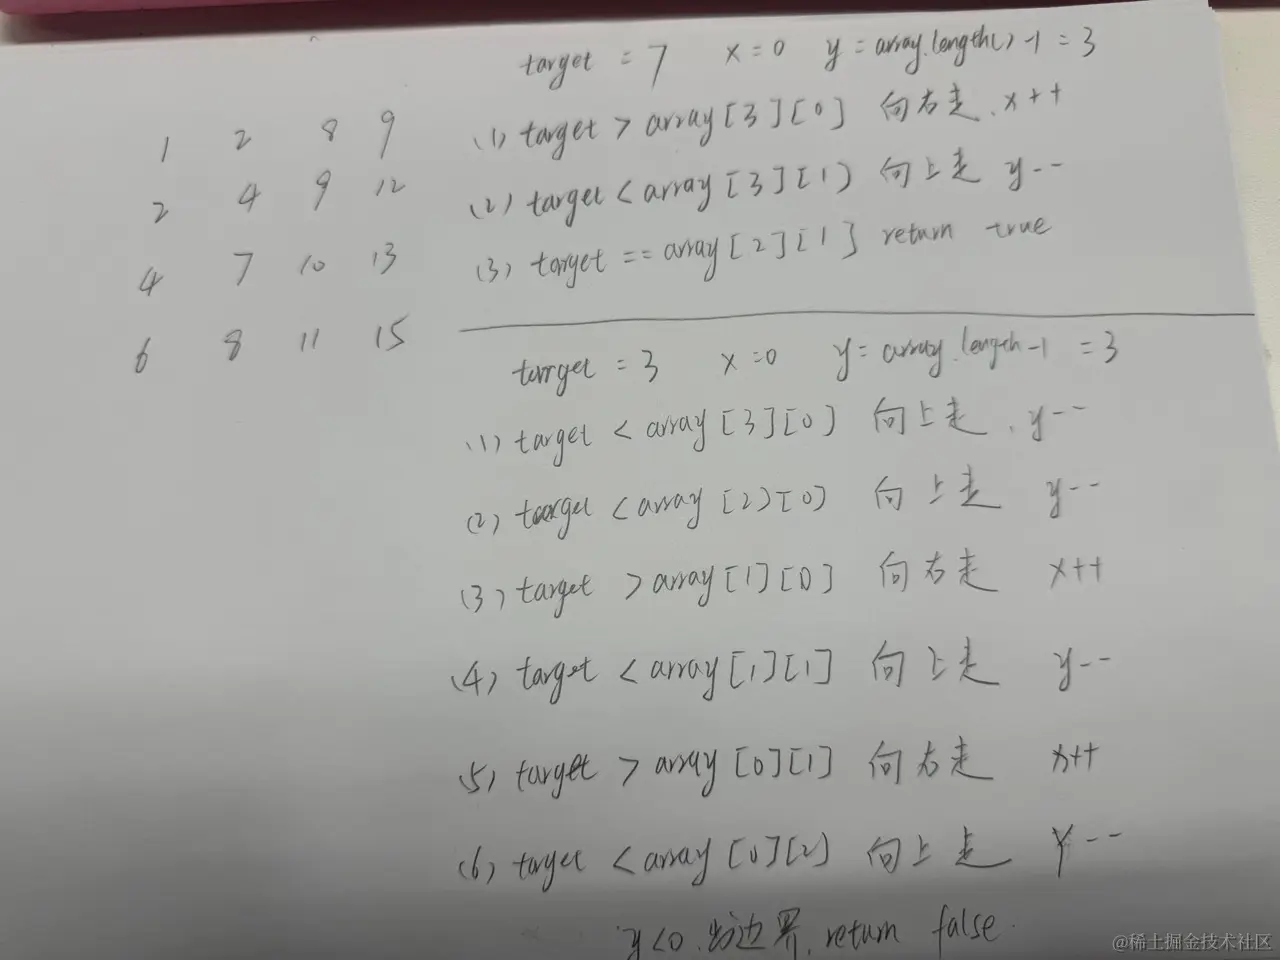 1 2 8 9
2 4 9 12
4 7 10 13
6 8 11 15
target = 7 x=0 y=array.length()-1=3
(1) target > array[3][0] 向右走.x++
(2) target < array[3][1) 向上走 y--
(3) target == array[2][1] return true
target = 3 x=0 y=array.length-1 =3
(1) target < array[3][0] 向上走.y--
(2) target < array[2)[0) 向上走 y--
(3) target > array[1][0] 向右走 x++
(4) target < array[1][1] 向上走 y--
(5) target > array[0][1] 向右走 x++
(6) target < array[0][2) 向上走 y--
y<0.出边界.return false.
@稀土掘金技术社区